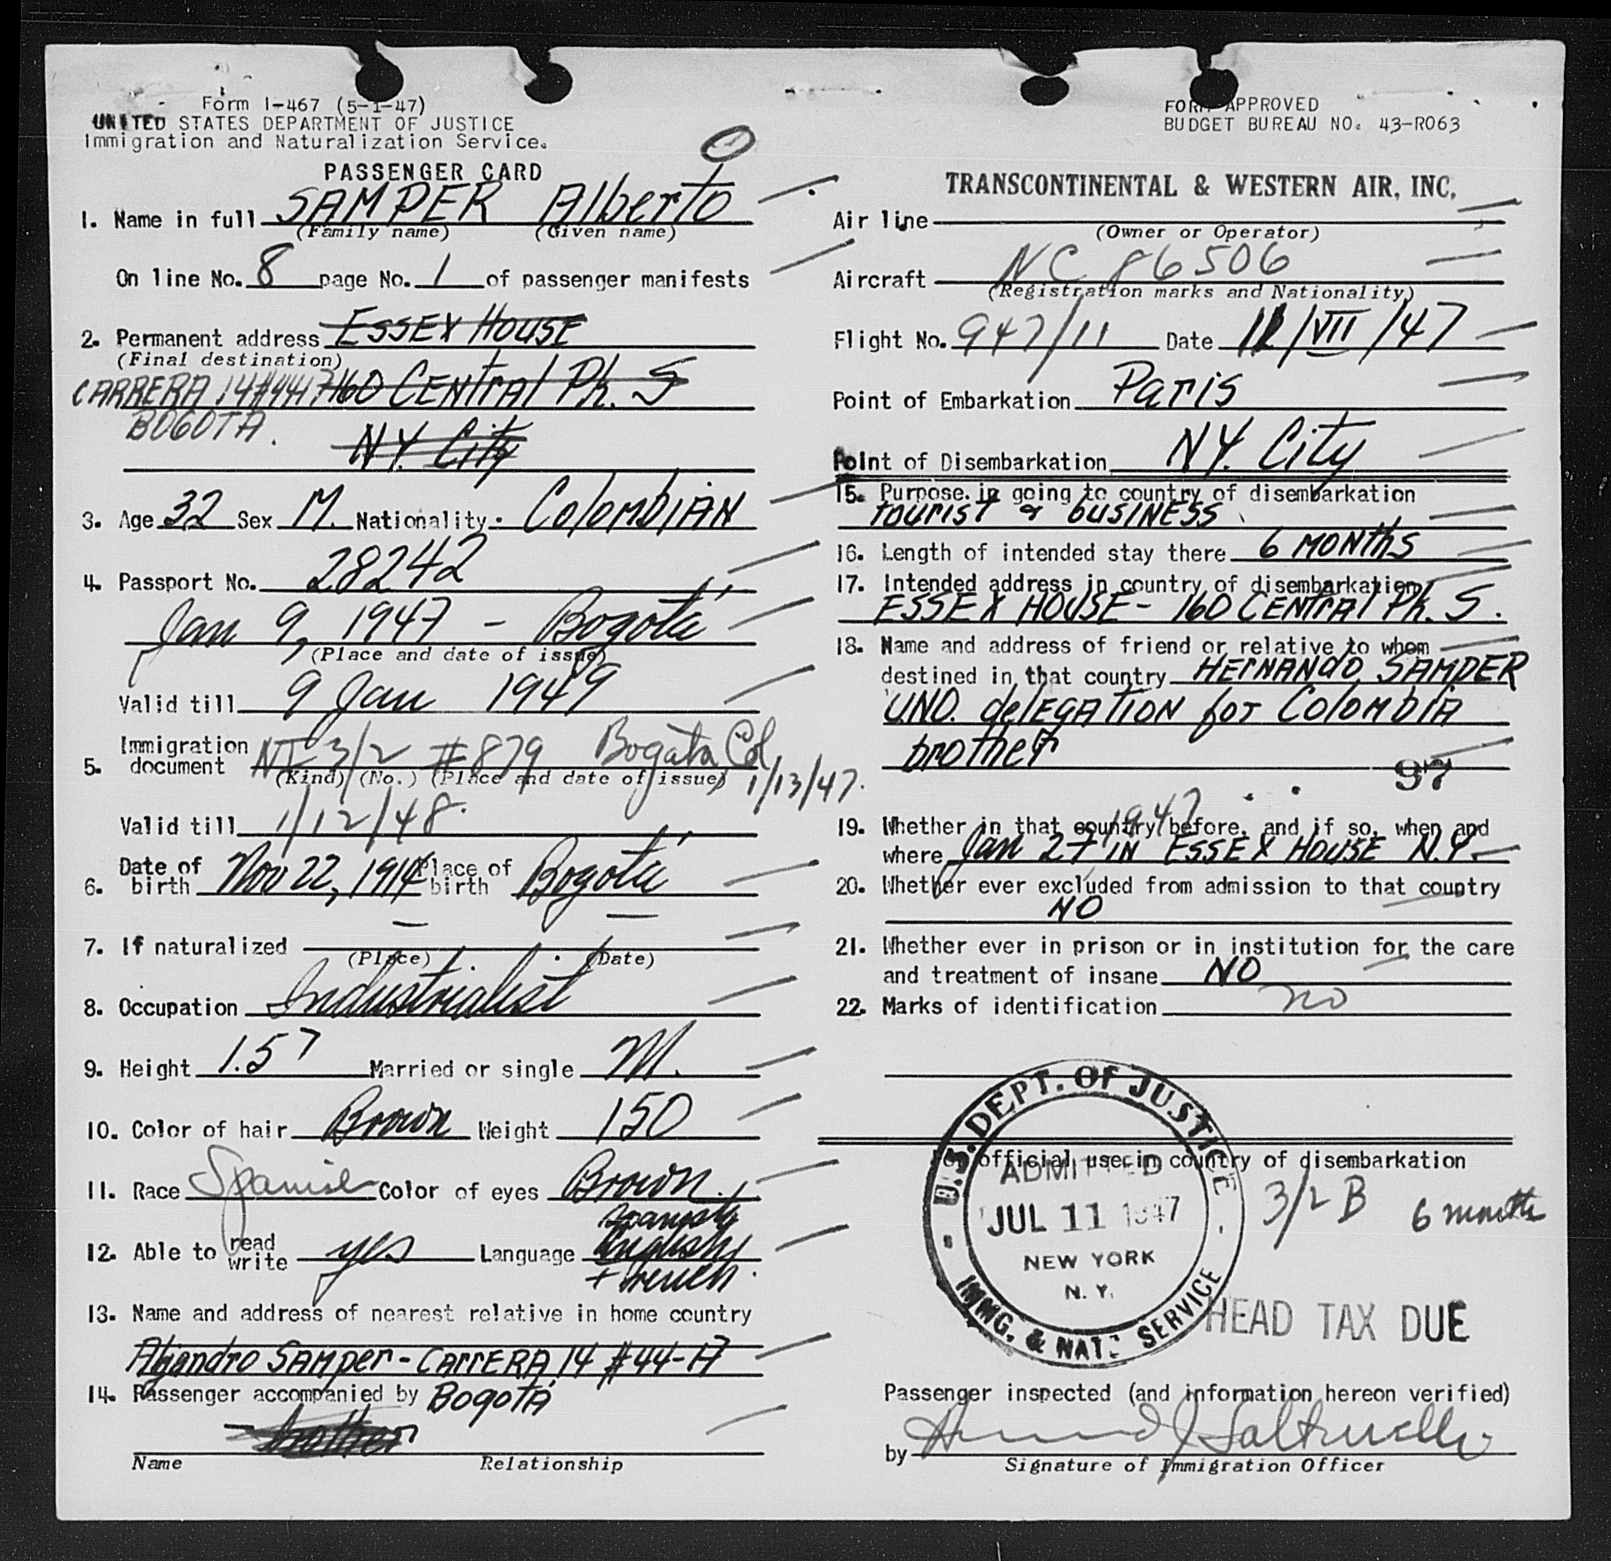 Form I-467 (5-1-47)
UNITED STATES DEPARTMENT OF JUSTICE
Immigration and Naturalization Service.
PASSENGER CARD
1. Name in full SAMPER Alberto
(Family name) (Given name)
On line No. 8 page No. 1 of passenger manifests
2. Permanent address ESSEX HOUSE
(Final destination)
CARRERA 14 # 160 CENTrAl Pk. S
BOGOTA.
N.Y. City
3. Age 32 Sex M. Nationality. ColoMBIAN
4. Passport No. 28242
Jan 9, 1947 - Bogotá
(Place and date of issue)
Valid till 9 Jan 1949
5. Immigration document 3/2 #879 Bogata Col
(Kind) (No.) (Place and date of issue) 1/13/47.
Valid till 1/12/48.
6. Date of birth Nov 22, 1914 Place of birth Bogotá
7. If naturalized — —
(Place) (Date)
8. Occupation Industrialist
9. Height 1.57 Married or single M.
10. Color of hair Brown Weight 150
11. Race Spanish Color of eyes Brown.
12. Able to read write yes Language Spanish English + French.
13. Name and address of nearest relative in home country
Alejandro SAMPEr - CArrERA 14 #44-17
14. Passenger accompanied by BogotÁ
brother
Name Relationship
FORM APPROVED
BUDGET BUREAU NO. 43-R063
TRANSCONTINENTAL & WESTERN AIR, INC.
Air line
(Owner or Operator)
Aircraft NC 86506
(Registration marks and Nationality)
Flight No. 947/11 Date 11/VII/47
Point of Embarkation Paris
Point of Disembarkation N.Y. City
15. Purpose in going to country of disembarkation
tourisT & BUSINESS
16. Length of intended stay there 6 MONthS
17. Intended address in country of disembarkation
ESSEX HOUSE - 160 CENTrAl Pk. S.
18. Name and address of friend or relative to whom
destined in that country HErNANdO SAMPER
U.N.O. delEGATION for ColoMBIA
brother
97
19. Whether in that country before, and if so, when and
where Jan 27 1947 IN ESSEX HOUSE N.Y
20. Whether ever excluded from admission to that country
NO
21. Whether ever in prison or in institution for the care
and treatment of insane NO
22. Marks of identification no
For official use in country of disembarkation
U.S. DEPT. OF JUSTICE
ADMITTED
JUL 11 1947
NEW YORK
N.Y.
IMMG. & NAT. SERVICE
3/2 B 6 months
HEAD TAX DUE
Passenger inspected (and information hereon verified)
by
Signature of Immigration Officer